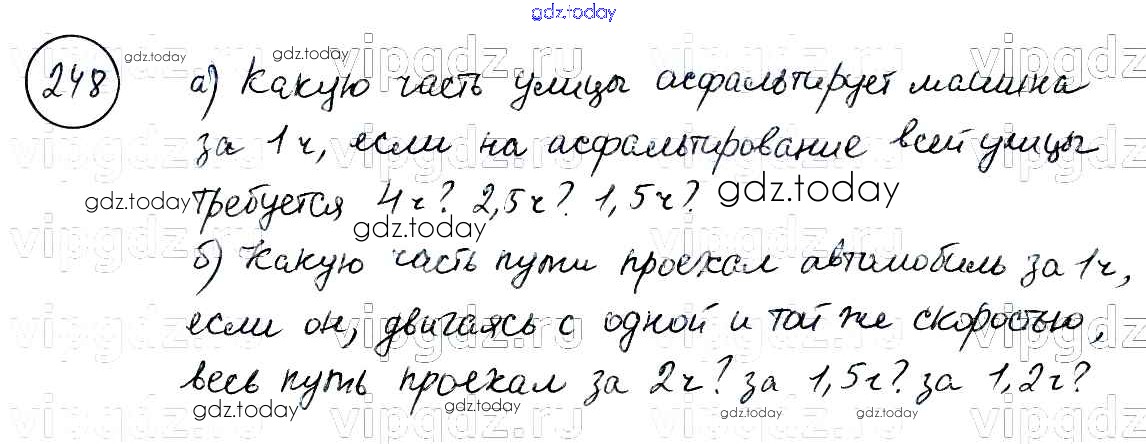 gdz.today
248 а) Какую часть улицы асфальтирует машина
за 1ч, если на асфальтирование всей улицы
требуется 4ч? 2,5ч? 1,5ч?
б) Какую часть пути проехал автомобиль за 1ч,
если он, двигаясь с одной и той же скоростью,
весь путь проехал за 2ч? за 1,5ч? за 1,2ч?
gdz.today
gdz.today
gdz.today
gdz.today
gdz.today
gdz.today
gdz.today
gdz.today
gdz.today
vipgdz.ru
vipgdz.ru
vipgdz.ru